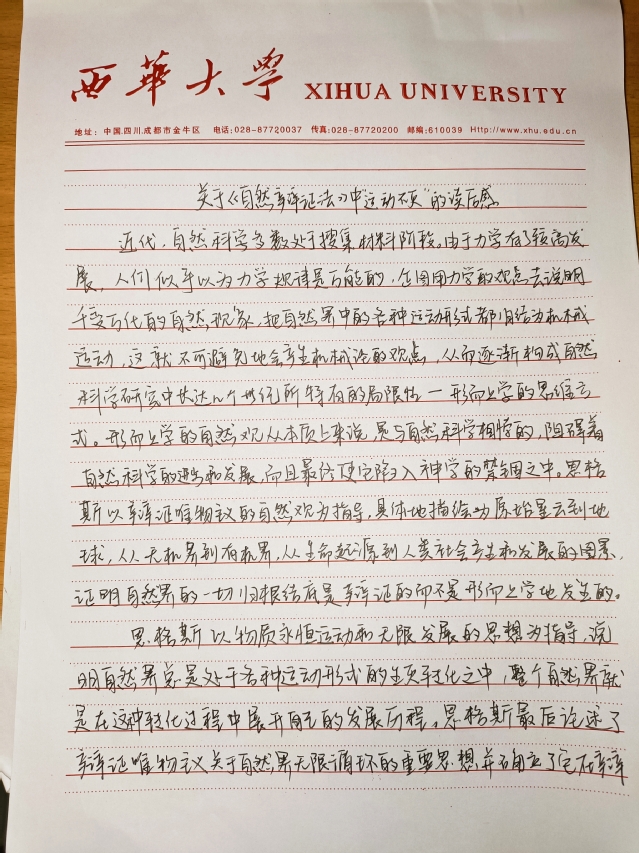 西華大學 XIHUA UNIVERSITY
地址：中国.四川.成都市金牛区 电话:028-87720037 传真:028-87720200 邮编:610039 Http://www.xhu.edu.cn
关于《自然辩证法》中"运动不灭"的读后感
近代，自然科学多数处于搜集材料阶段。由于力学有了较高发
展，人们似乎以为力学规律是万能的，企图用力学的观点去说明
千变万化的自然现象，把自然界中的各种运动形式都归结为机械
运动，这就不可避免地会产生机械论的观点，从而逐渐构成自然
科学研究中长达几个世纪所特有的局限性一形而上学的思维方
式。形而上学的自然观从本质上来说，是与自然科学相悖的，阻碍着
自然科学的进步和发展，而且最终使它陷入神学的禁锢之中。恩格
斯以辩证唯物主义的自然观为指导，具体地描绘出原始星云到地
球，从无机界到有机界，从生命起源到人类社会产生和发展的图景，
证明自然界的一切归根结底是辩证的而不是形而上学地发生的。
恩格斯以物质永恒运动和无限发展的思想为指导，说
明自然界总是处于各种运动形式的相互转化之中，整个自然界就
是在这种转化过程中展开自己的发展历程。恩格斯最后论述了
辩证唯物主义关于自然界无限循环的重要思想，并确立了它在辩证